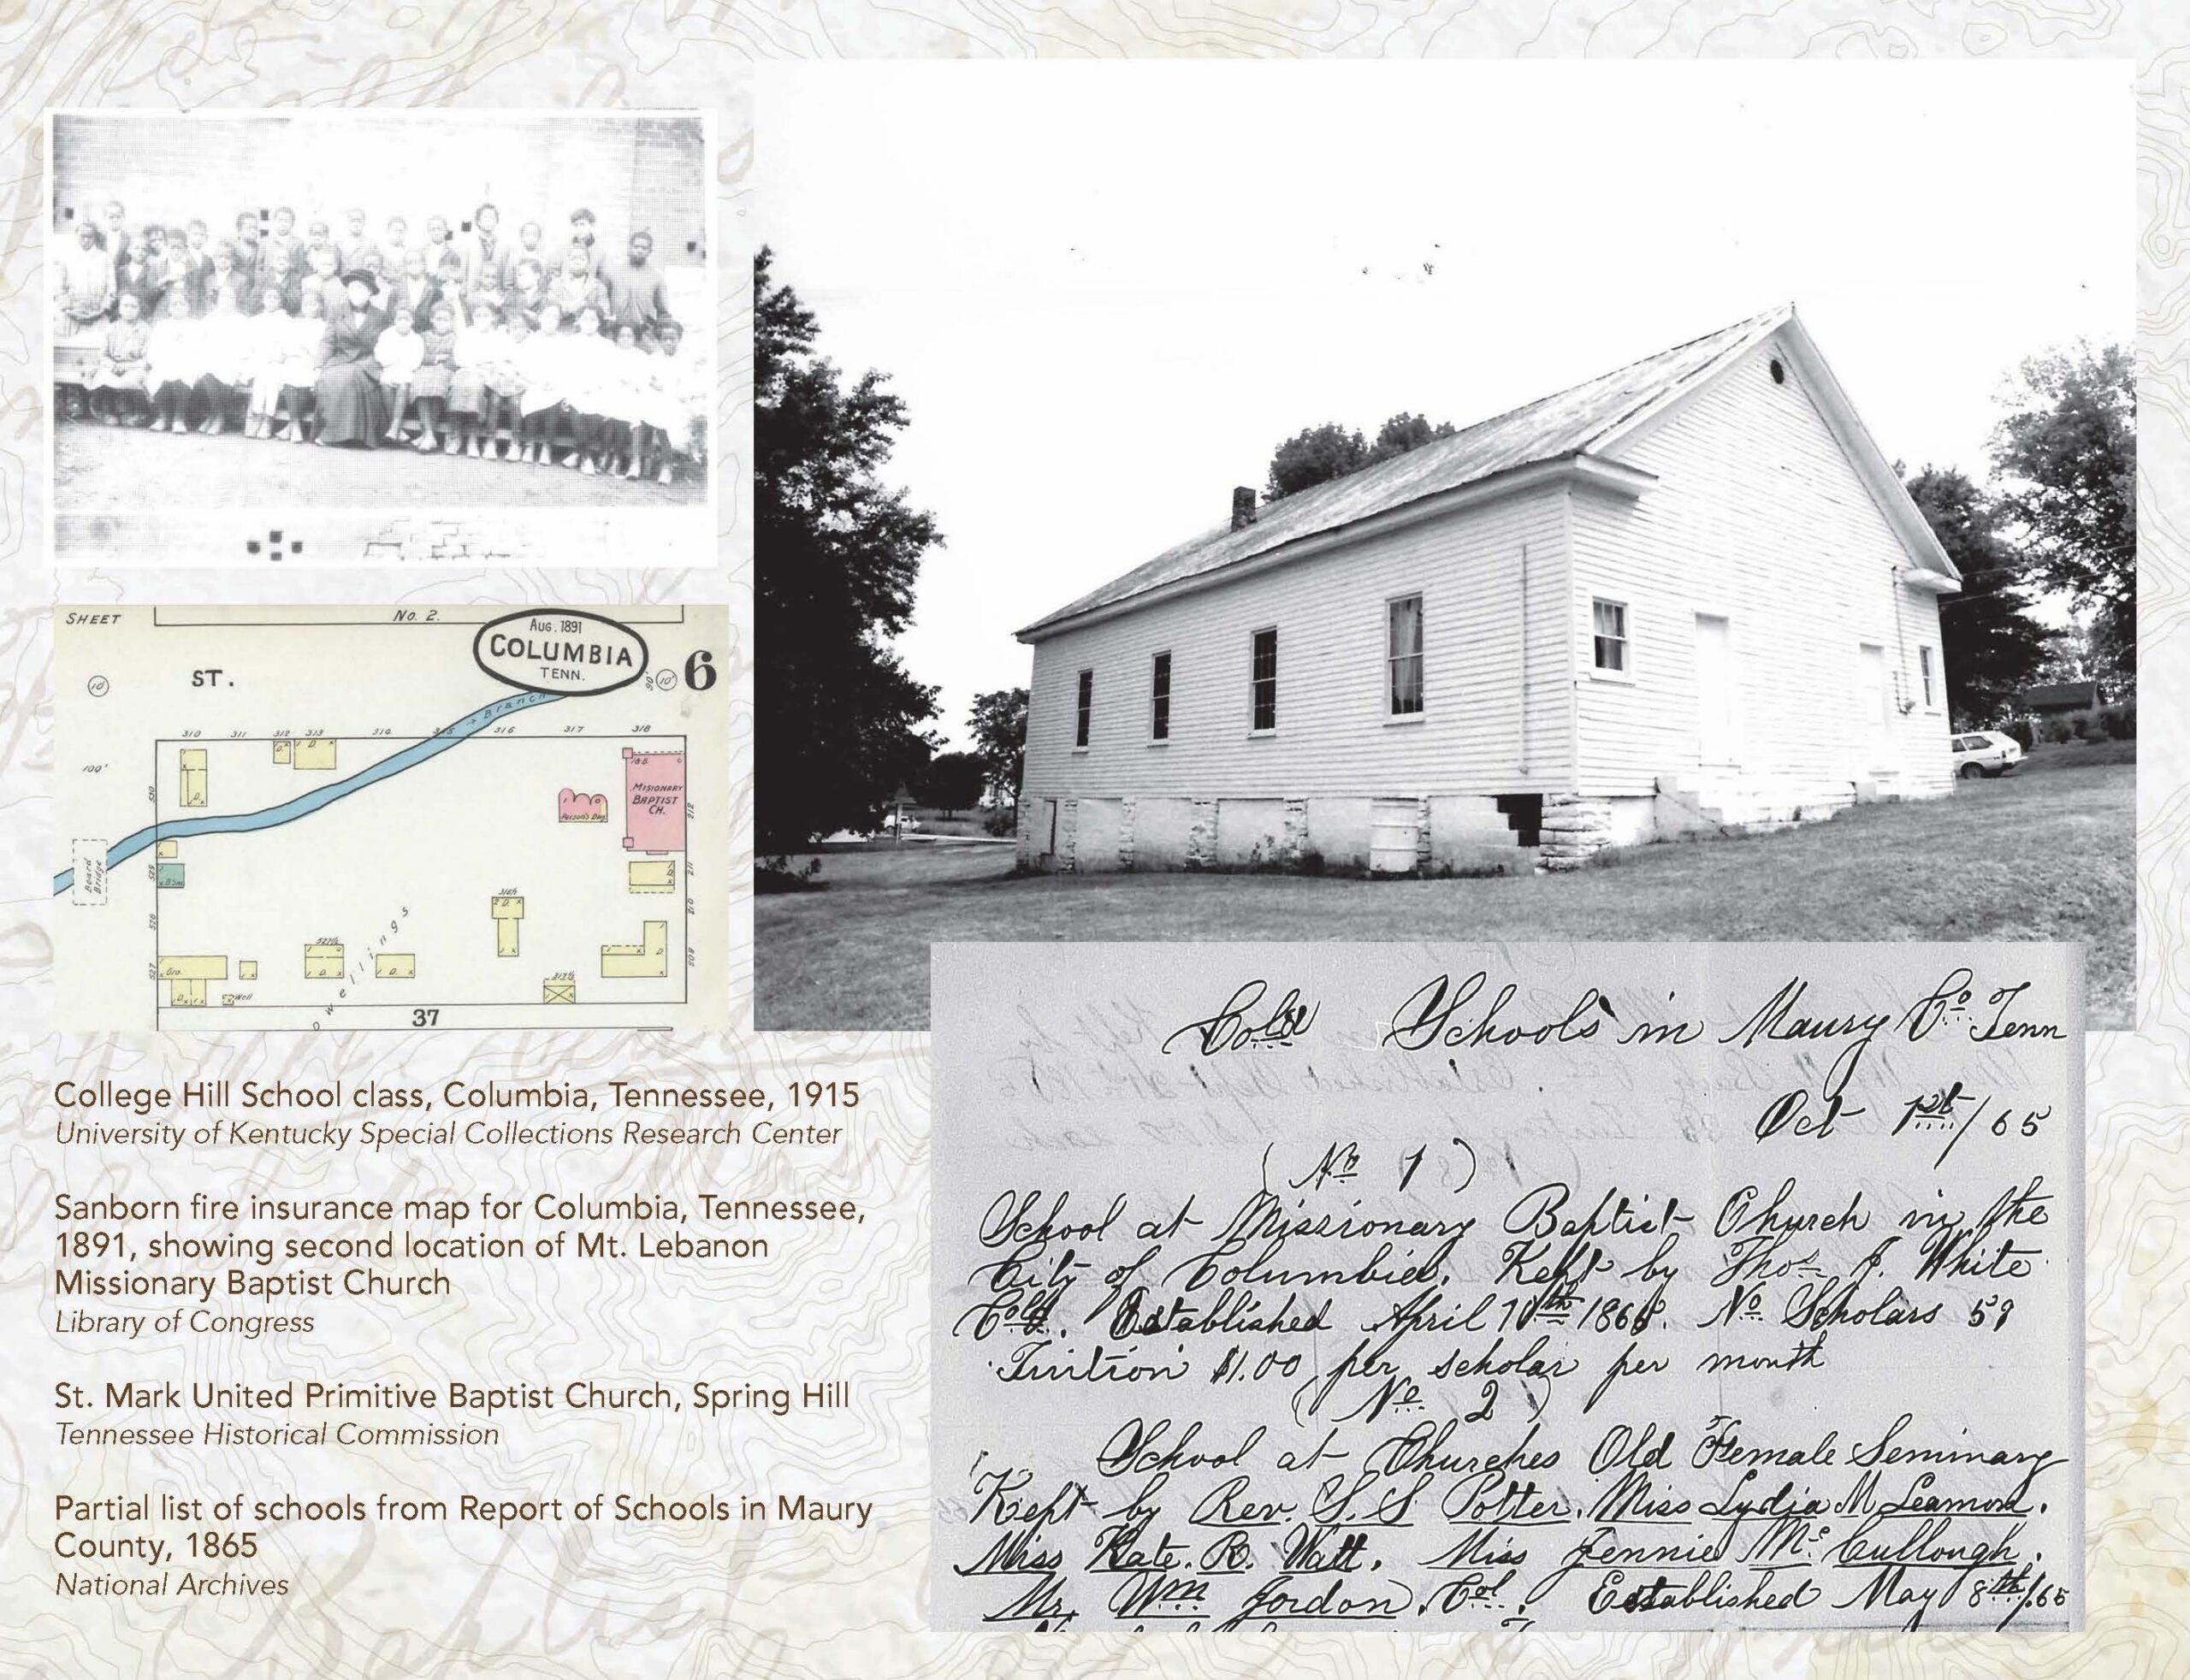 SHEET
No. 2.
Aug. 1891
COLUMBIA
TENN.
6
ST.
10
90'
10'
Branch
310 311 312 313 314 315 316 317 318
100'
530
D.
D.
D.
18 B.
MISIONARY
BAPTIST
CH.
212
Parson's Dwg
Board
Bridge
529
211
526
316½
2 D. X
210
Dwellings
527
Gro.
527½
D.
D.
D.
209
Well
317½
37
College Hill School class, Columbia, Tennessee, 1915
University of Kentucky Special Collections Research Center
Sanborn fire insurance map for Columbia, Tennessee,
1891, showing second location of Mt. Lebanon
Missionary Baptist Church
Library of Congress
St. Mark United Primitive Baptist Church, Spring Hill
Tennessee Historical Commission
Partial list of schools from Report of Schools in Maury
County, 1865
National Archives
Cold Schools in Maury Co Tenn
Oct 1st/65
(No 1)
School at Missionary Baptist Church in the
City of Columbia. Kept by Thos J. White
Cold. Established April 10th 1865. No Scholars 59
Tuition $1.00 per scholar per month
(No 2)
School at Churches Old Female Seminary
Kept by Rev. S. S Potter. Miss Lydia M Leamord.
Miss Kate. R. Watt. Miss Jennie Mc Cullough.
Mr. Wm Jordon. Col. Established May 8th/65